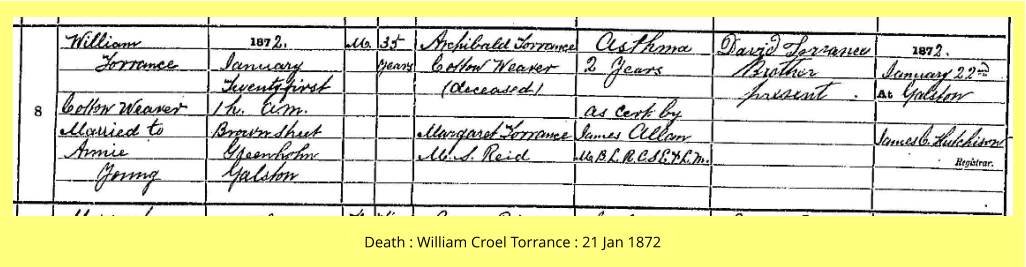 8
William
Torrance
Cotton Weaver
Married to
Annie
Young
1872.
January
Twenty first
1 h. A.M.
Brown Street
Greenholm
Galston
M. 35
years
Archibald Torrance
Cotton Weaver
(deceased)
Margaret Torrance
M.S. Reid
Asthma
2 Years
as cert by
James Allan
M.B.L.R.C.S.E. & L.M.
David Torrance
Brother
present.
1872.
January 22nd
At Galston
James C. Hutchison
Registrar.
Death : William Croel Torrance : 21 Jan 1872